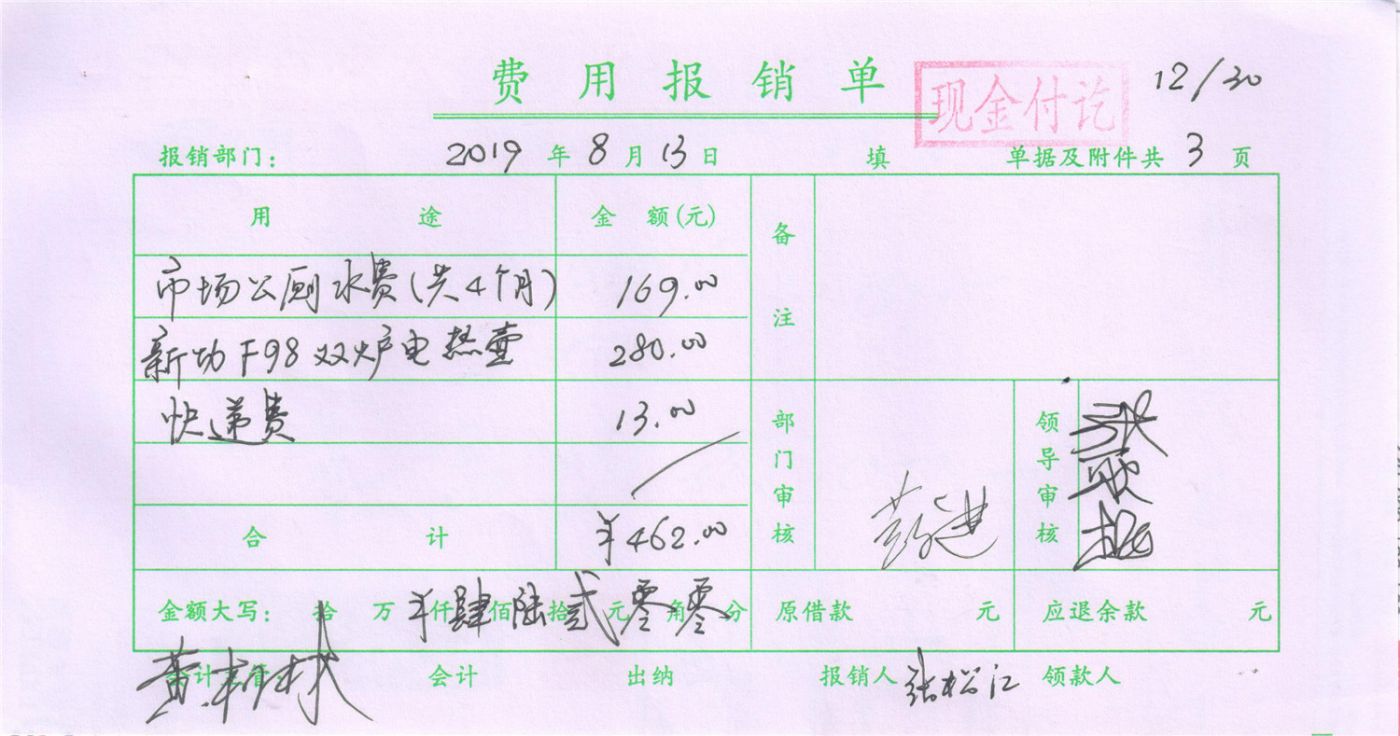 费用报销单 现金付讫 12/30
报销部门： 2019年8月13日 填 单据及附件共3页
用途 金额(元) 备注
市场公厕水费(共4个月) 169.00
新功F98双炉电热壶 280.00
快递费 13.00
部门审核 领导审核
合计 ¥462.00
金额大写： 拾 万 ¥仟肆佰陆拾贰元零角零分 原借款 元 应退余款 元
会计主管 会计 出纳 报销人 张松江 领款人